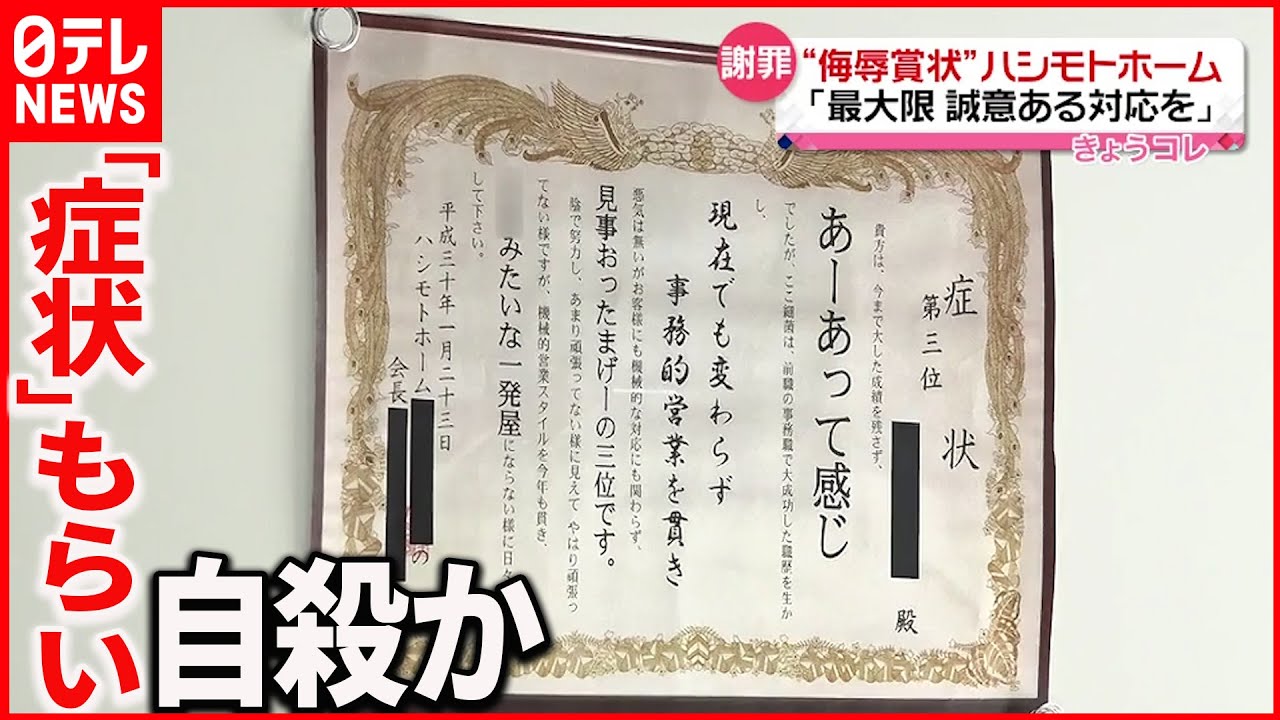 日テレ
NEWS
謝罪
“侮辱賞状”ハシモトホーム
「最大限 誠意ある対応を」
きょうコレ
「症状」もらい
自殺か
症状
第三位
殿
貴方は、今まで大した成績を残さず、
あーあって感じ
でしたが、ここ細菌は、前職の事務職で大成功した職歴を生か
し、
現在でも変わらず
事務的営業を貫き
悪気は無いがお客様にも機械的な対応にも関わらず、
見事おったまげーの三位です。
陰で努力し、あまり頑張ってない様に見えて やはり頑張っ
てない様ですが、機械的営業スタイルを今年も貫き、
みたいな一発屋にならない様に日々
して下さい。
平成三十年一月二十三日
ハシモトホーム
の
会長